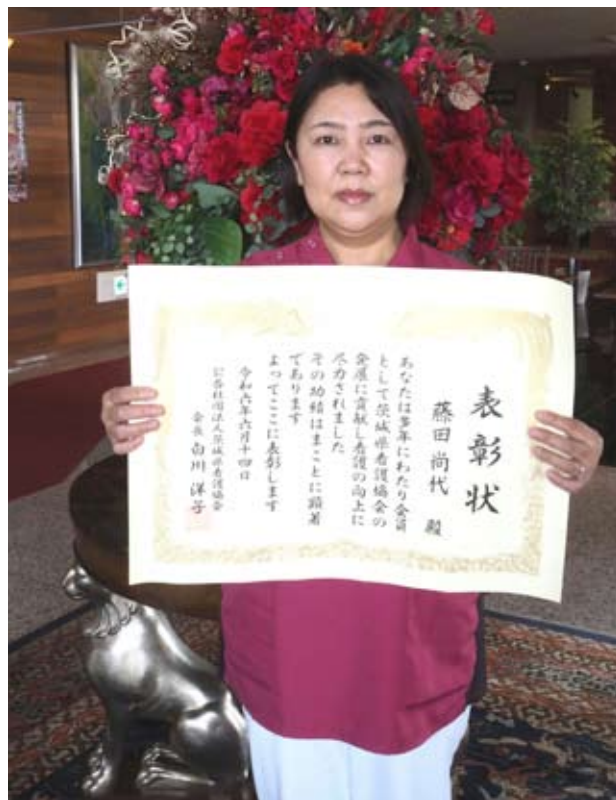 表彰状
藤田尚代 殿
あなたは多年にわたり会員
として茨城県看護協会の
発展に貢献し看護の向上に
尽力されました
その功績はまことに顕著
であります
よってここに表彰します
令和六年六月十四日
公益社団法人茨城県看護協会
会長 白川洋子